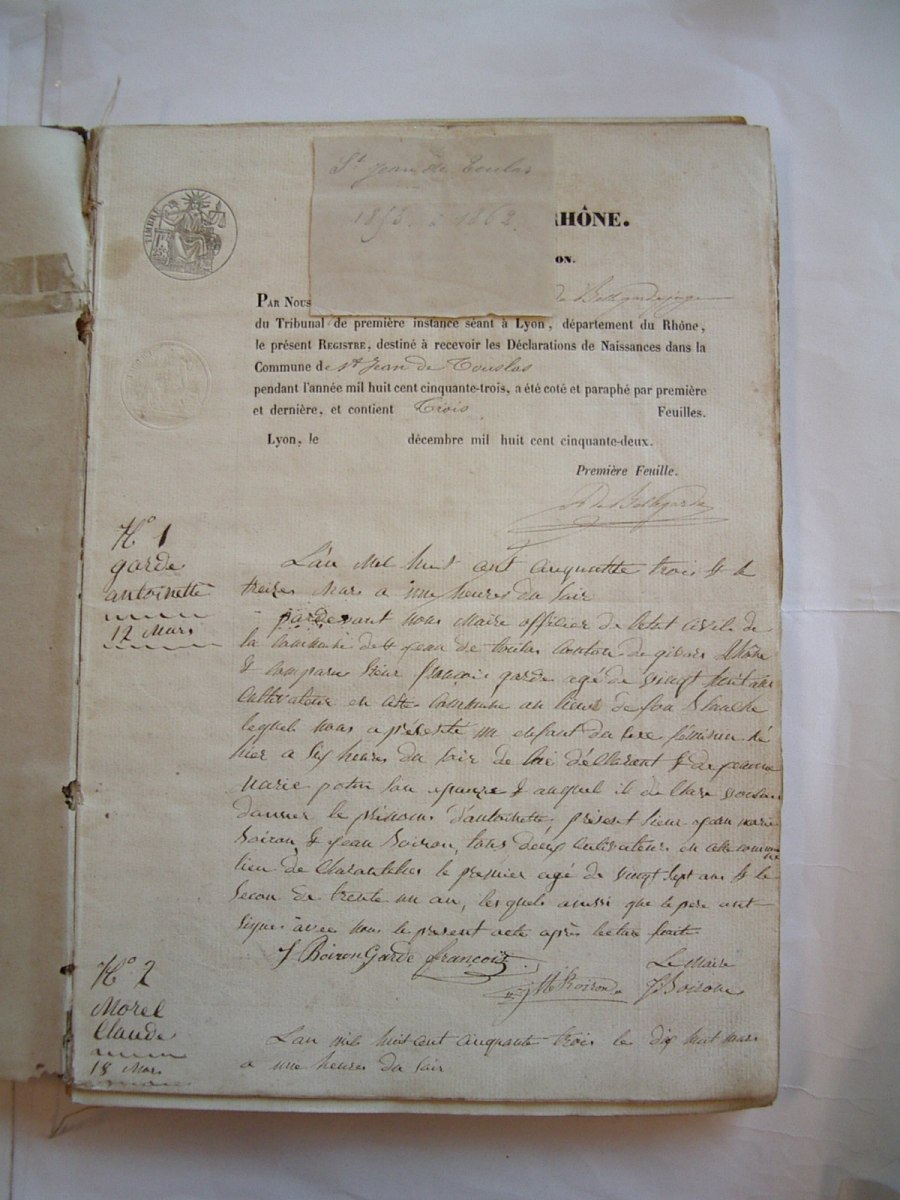 St jean de Touslas
1853 à 1862
RHÔNE.
ON.
TIMBRE
PAR NOUS de Bellegarde juge
du Tribunal de première instance séant à Lyon, département du Rhône,
le présent REGISTRE, destiné à recevoir les Déclarations de Naissances dans la
Commune de St Jean de Touslas
pendant l'année mil huit cent cinquante-trois, a été coté et paraphé par première
et dernière, et contient Trois Feuilles.
Lyon, le décembre mil huit cent cinquante-deux.
Première Feuille.
De Bellegarde
N° 1
garde
antoinette
12 Mars
L'an Mil huit cent cinquante trois & le
treize Mars a une heures du soir
pardevant nous Maire officier de letat civile de
la commune de st jean de toulas canton de givors Rhône
& comparu sieur françois garde agé de vingt huit ans
Cultivateur en cette commune au lieux de
lequel nous a présenté un enfant du sexe féminin né
hier a six heures du soir de lui déclarant & de jeanne
Marie son epouze & auquel il declare vouloir
donner le prénoms d'antoinette, présent sieur jean marie
Boiron & jean Boiron, tous deux cultivateurs en cette commune
lieu de le premier agé de vingt sept ans & le
secon de trente un an, lesquels ainssi que le pere ont
signés avec nous le present acte après lecture fait
J Boiron Garde françois
JM Boiron Le Maire
J Boiron
N° 2
Morel
Claude
18 Mars
L'an mil huit cent cinquante trois le dix huit mars
a une heures du soir